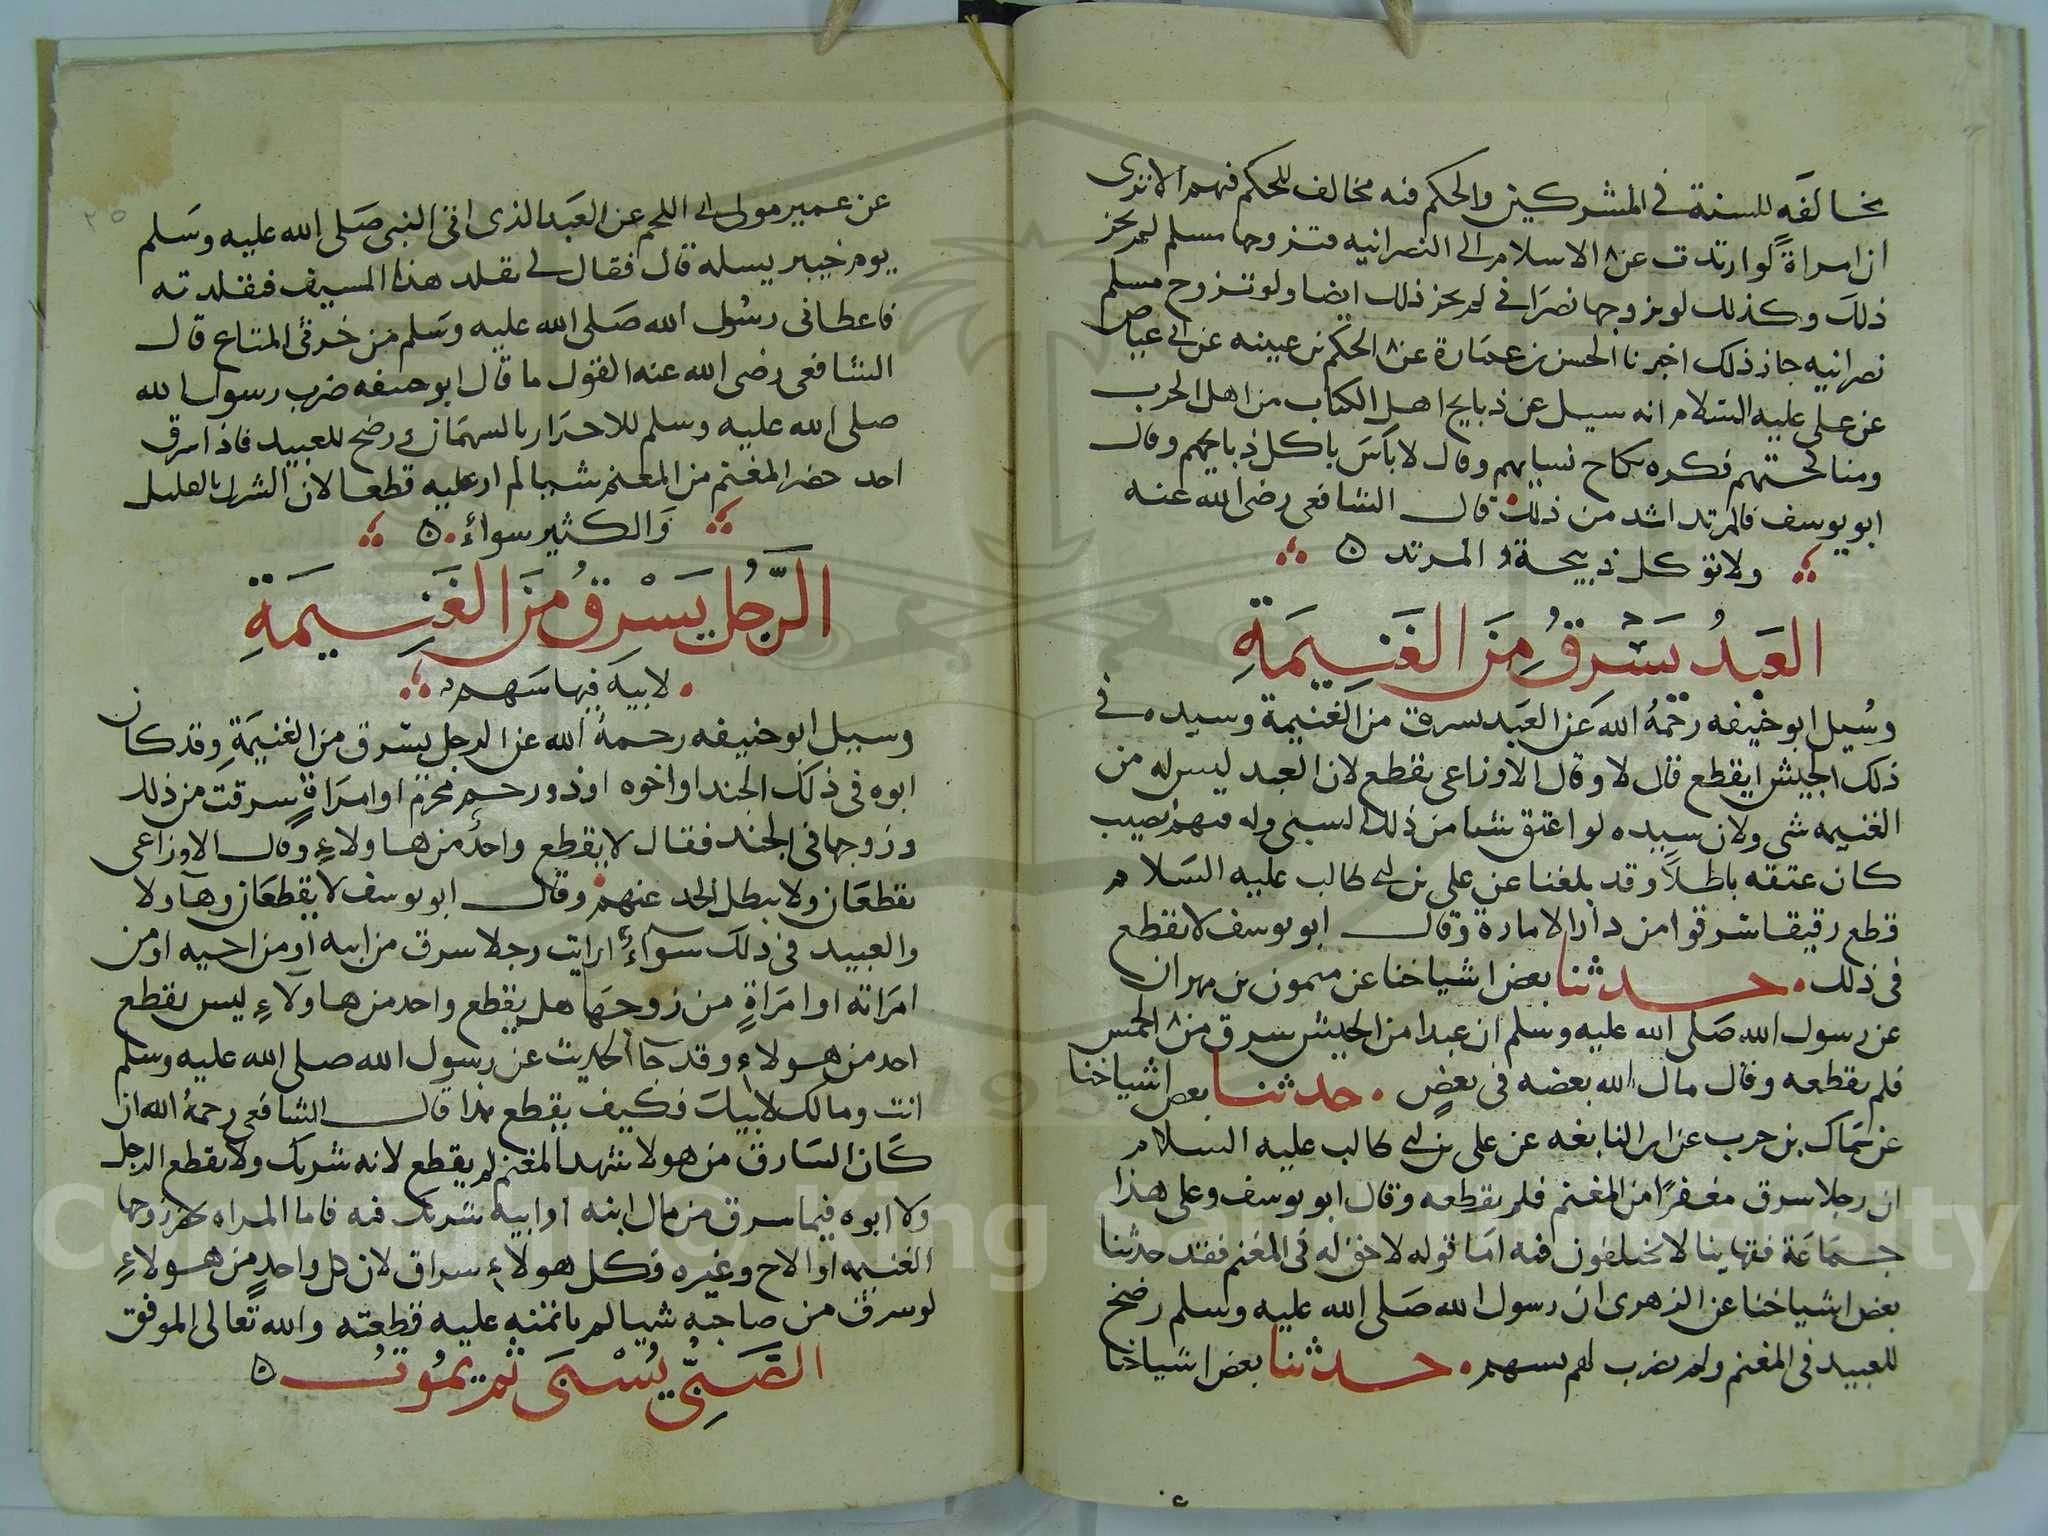 بخالفه للسنة في المشركين والحكم فيه مخالف للحكم فيهم الا ترى
ان امراة لو ارتدت عن الاسلام الى النصرانيه فتزوجها مسلم لم يجز
ذلك وكذلك لو تزوجها نصراني لم يجز ذلك ايضا ولو تزوج مسلم
نصرانيه جاز ذلك اخبرنا الحسن بن عمارة عن الحكم بن عيينه عن ابي عياض
عن علي عليه السلام انه سيل عن ذبايح اهل الكتاب من اهل الحرب
ومناكحتهم فكره نكاح نسايهم وقال لا باس باكل ذبايحهم وقال
ابو يوسف فالمرتد اشد من ذلك قال الشافعي رضى الله عنه
ولا توكل ذبيحة المرتد
العبد يسرق من الغنيمة
وسيل ابو حنيفه رحمه الله عن العبد يسرق من الغنيمة وسيده في
ذلك الجيش ايقطع قال لا وقال الاوزاعى يقطع لان العبد ليس له من
الغنيمه شى ولان سيده لو اعتق شيا من ذلك السبى وله فيهم نصيب
كان عتقه باطلا وقد بلغنا عن علي بن ابي طالب عليه السلام
قطع رقيقا سرقوا من دار الامارة وقال ابو يوسف لا يقطع
في ذلك حدثنا بعض اشياخنا عن ميمون بن مهران
عن رسول الله صلى الله عليه وسلم ان عبدا من الجيش سرق من الخمس
فلم يقطعه وقال مال الله بعضه في بعض حدثنا بعض اشياخنا
عن سماك بن حرب عن ابن النابغه عن علي بن ابي طالب عليه السلام
ان رجلا سرق مغفرا من المغنم فلم يقطعه وقال ابو يوسف وعلى هذا
جماعة فقهاينا لا يختلفون فيه اما قوله لا حق له في المغنم فقد حدثنا
بعض اشياخنا عن الزهرى ان رسول الله صلى الله عليه وسلم رضخ
للعبيد في المغنم ولم يضرب لهم بسهم حدثنا بعض اشياخنا
عن عمير مولى ابي اللحم عن العبد الذى اتى النبي صلى الله عليه وسلم
يوم خيبر يسله قال فقال لي تقلد هذا السيف فتقلدته
فاعطاني رسول الله صلى الله عليه وسلم من خرثي المتاع قال
الشافعي رضى الله عنه القول ما قال ابو حنيفه ضرب رسول الله
صلى الله عليه وسلم للاحرار بالسهمان و رضخ للعبيد فاذا سرق
احد حضر المغنم من المغنم شيا لم ار عليه قطعا لان الشرك بالقليل
والكثير سواء
الرجل يسرق من الغنيمة
لابيه فيها سهم
وسيل ابو حنيفه رحمه الله عن الرجل يسرق من الغنيمة وقد كان
ابوه في ذلك الجند او اخوه او ذو رحم محرم او امراة سرقت من ذلك
وزوجها في الجند فقال لا يقطع واحد من هاولاء وقال الاوزاعى
يقطعان ولا يبطل الحد عنهم وقال ابو يوسف لا يقطعان وهآولا
والعبيد في ذلك سوآء ارايت رجلا سرق من ابيه او من اخيه او من
امراته او امراة من زوجها هل يقطع واحد من هاولاء ليس يقطع
احد من هولاء وقد جا الحديث عن رسول الله صلى الله عليه وسلم
انت ومالك لابيك فكيف يقطع هذا قال الشافعي رحمه الله ان
كان السارق من هولا شهد المغنم لم يقطع لانه شريك ولا يقطع الرجل
ولا ابوه فيما سرق من مال ابنه او ابيه شريك فيه فاما المراه زوجها
الغنيمه او الاخ وغيره فكل هولاء سراق لان كل واحد من هولاء
لو سرق من صاحبه شيا لم ياتمنه عليه قطعته والله تعالى الموفق
الصبي يسبى ثم يموت
Copyright © King Saud University
1957